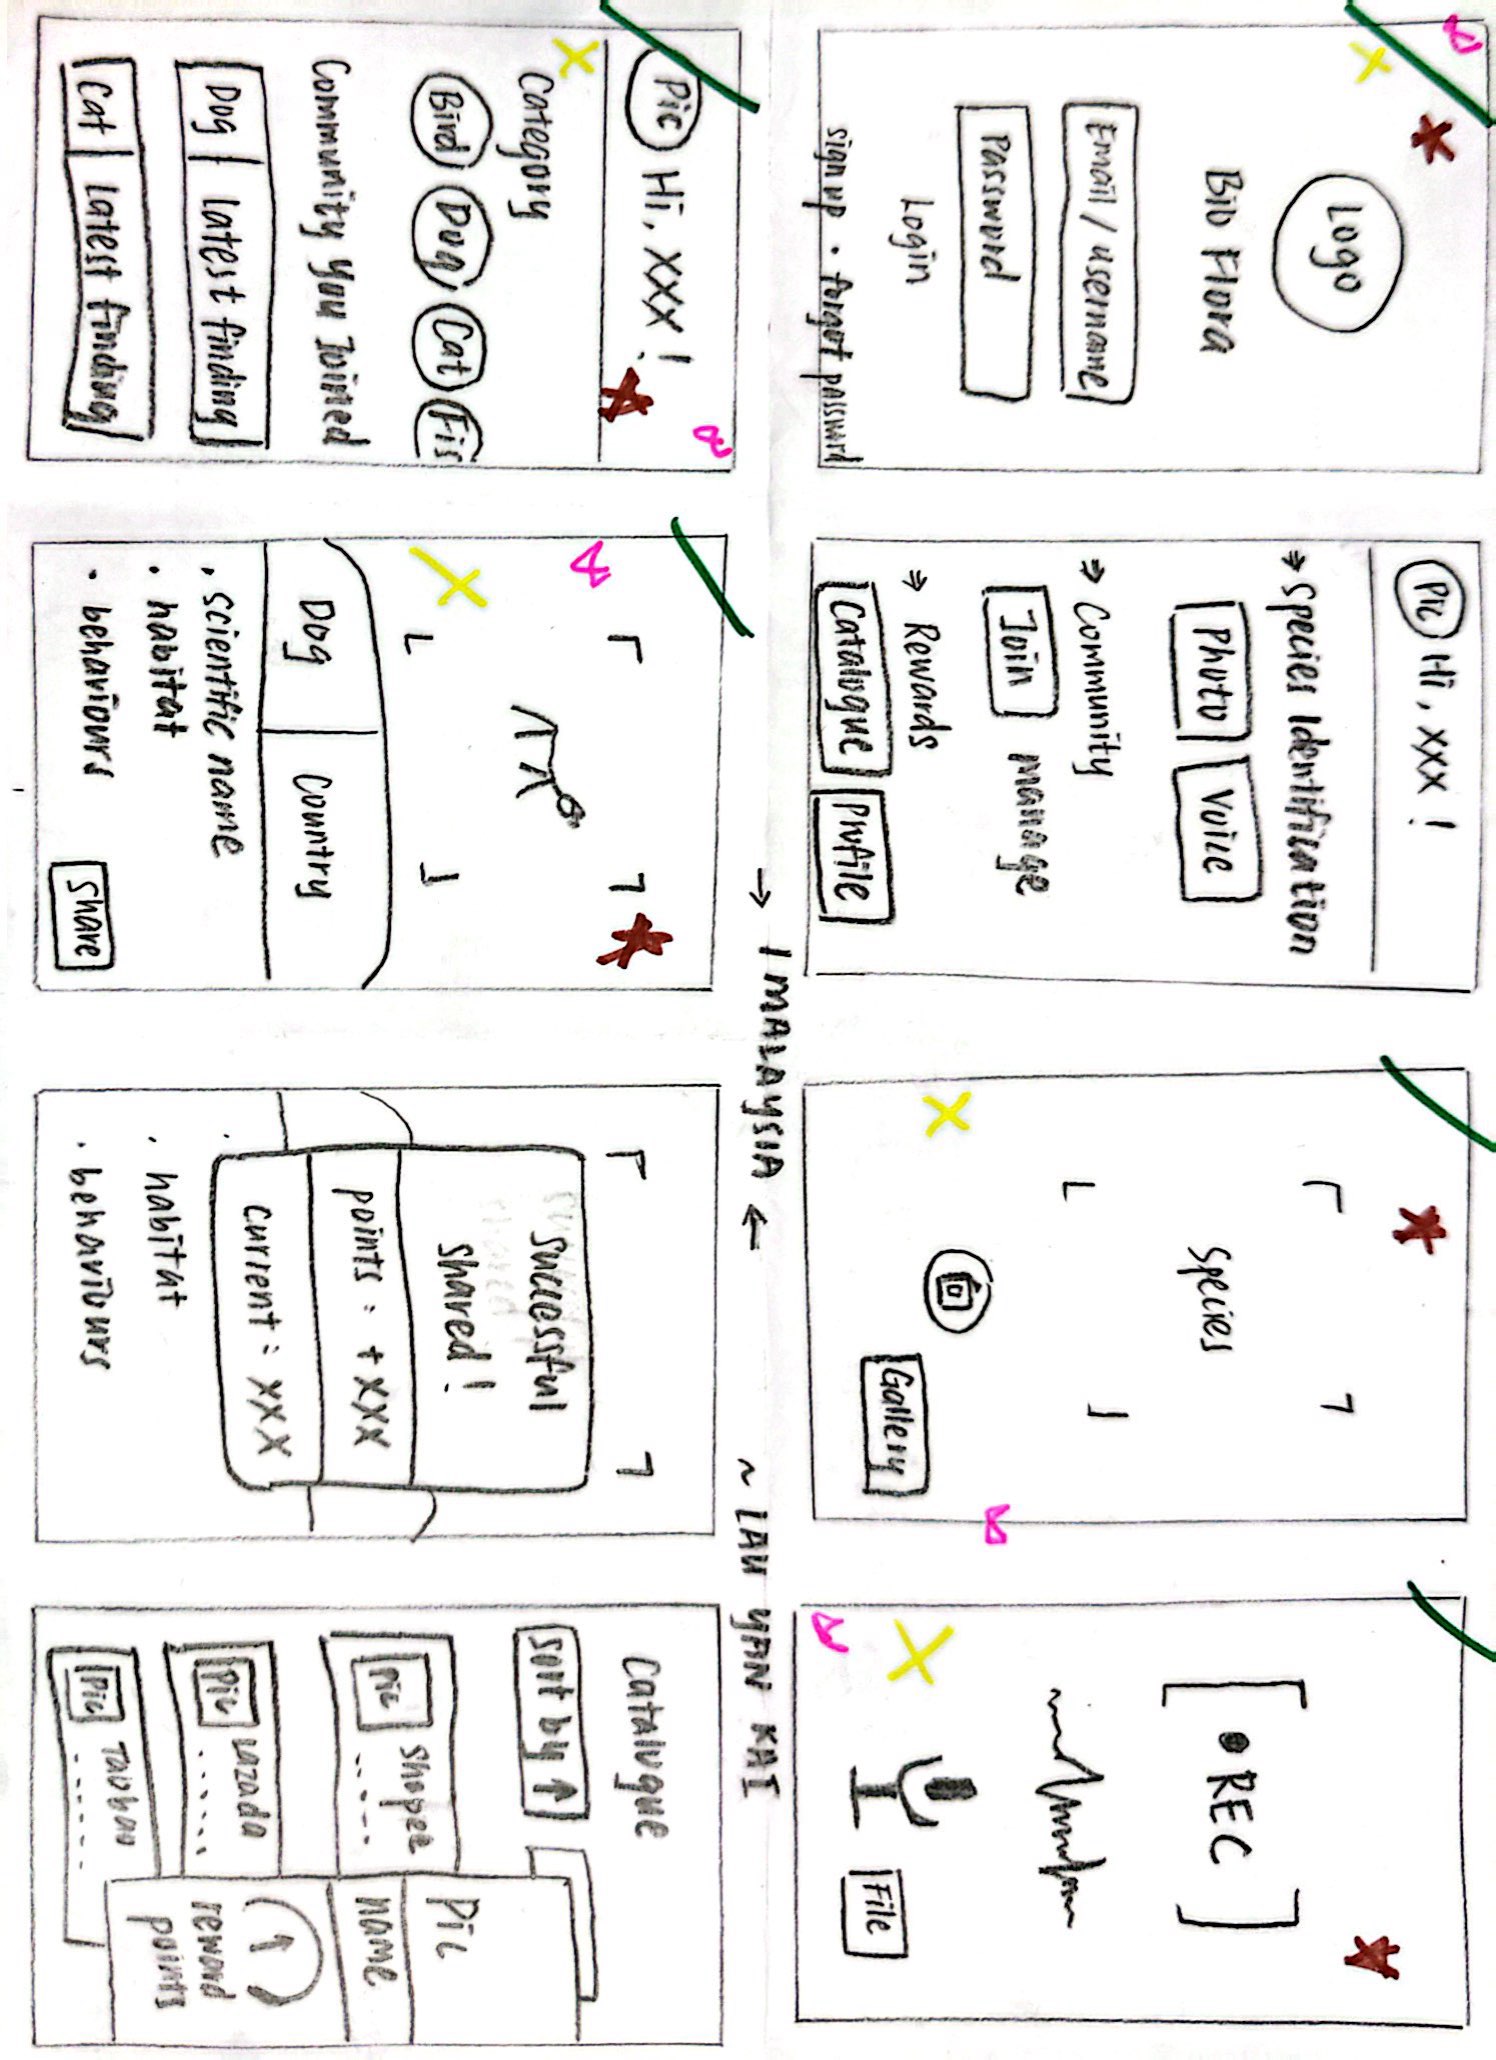 Logo
Bio Flora
Email / username
Password
Login
sign up · forgot password
Pic Hi, XXX !
⇒ Species Identification
Photo Voice
⇒ Community
Join manage
⇒ Rewards
Catalogue Profile
Species
Gallery
• REC
File
→ 1 MALAYSIA ←
~ LAU YAN KAI
Pic Hi, XXX !
Category
Bird Dog Cat Fis
Community you Joined
Dog latest finding
Cat latest finding
Dog Country
• scientific name
• habitat
• behaviours
Share
successful
shared !
points : + XXX
current : XXX
•
• habitat
• behaviours
Catalogue
Sort by ↑
Pic Shopee
Pic Lazada
Pic Taobao
Pic
name
reward
points